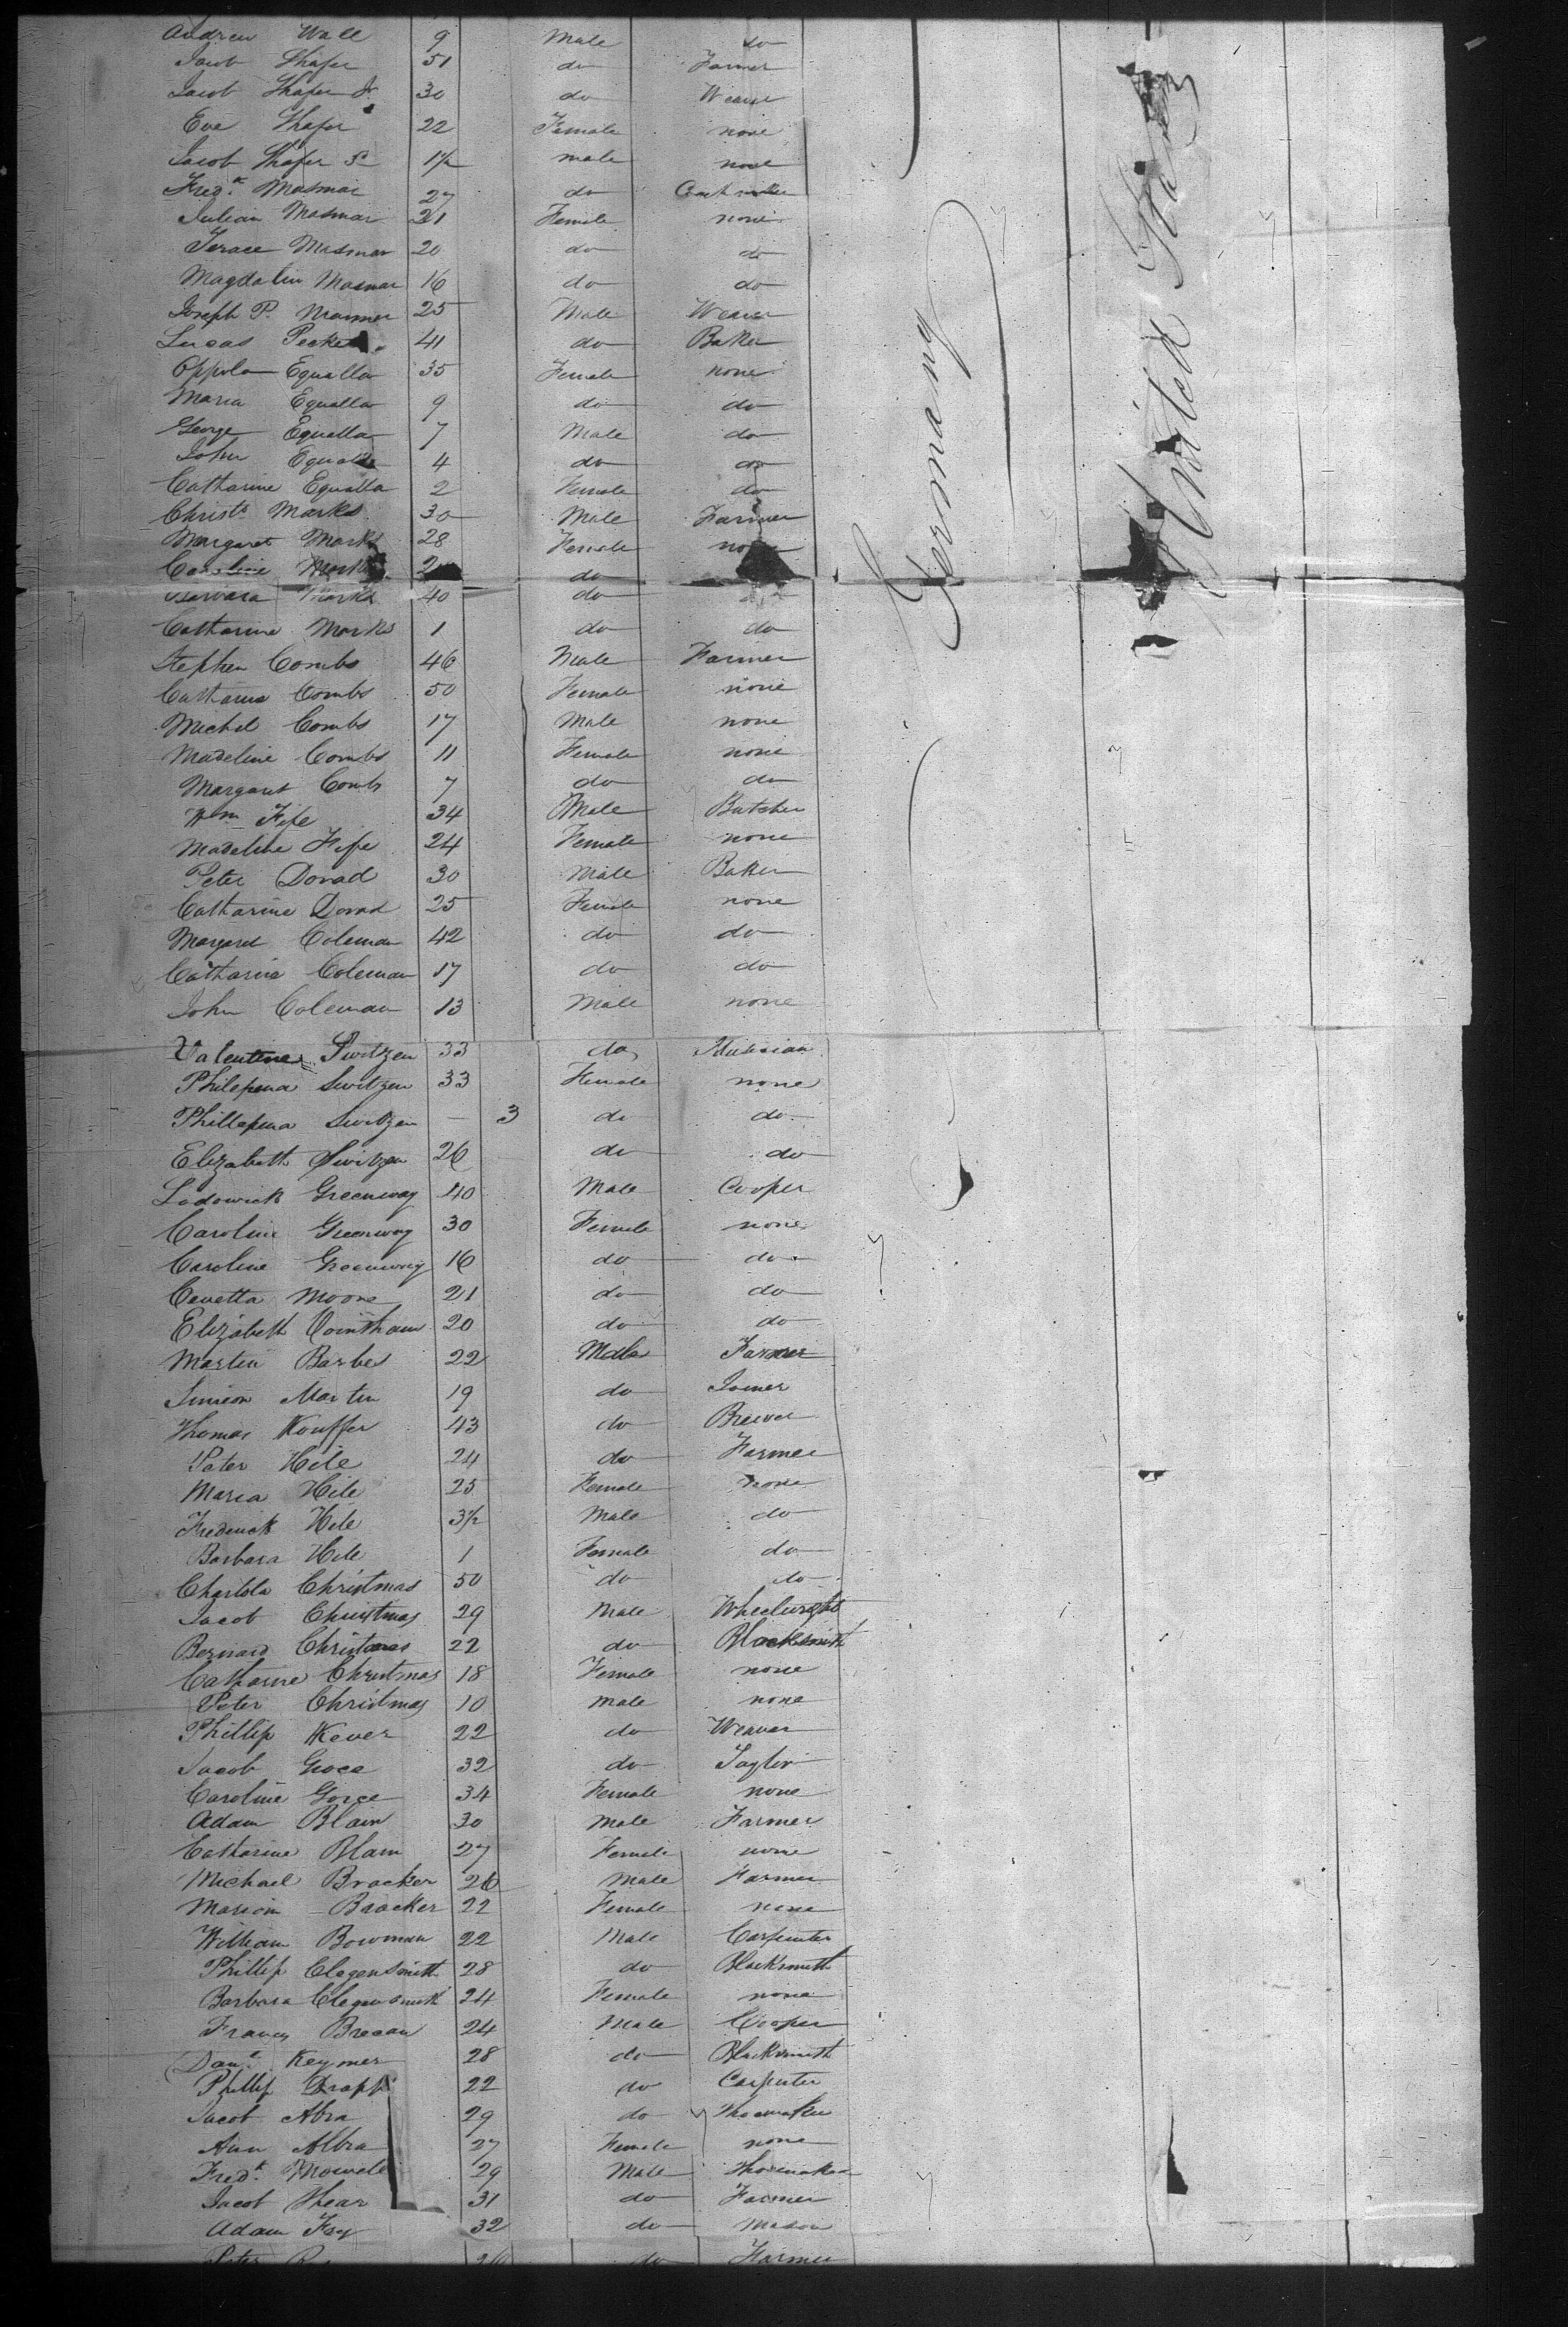 Andrew Wall 9 Male do
Jacob Shafer 51 do Farmer
Jacob Shafer Jr 30 do Weaver
Eve Shafer 22 Female none
Jacob Shafer 1½ male none
Fredk Masmar 27 do
Julian Masmar 21 Female none
Terace Masmar 20 do do
Magdalin Masmar 16 do do
Joseph P. 25 Male Weaver
Lucas 41 do Baker
Oppola Equalla 35 Female none
Maria Equalla 9 do do
George Equalla 7 Male do
John Equalla 4 do do
Catharine Equalla 2 Female do
Christn Marks 30 Male Farmer
Margaret Marks 28 Female
Caroline Marks do
Barbara Marks 40 do
Catharine Marks 1 do do
Stephen Combs 46 Male Farmer
Catharine Combs 50 Female none
Michel Combs 17 Male none
Madeline Combs 11 Female none
Margaret Combs 7 do do
Wm Fife 34 Male Butcher
Madeline Fife 24 Female none
Peter Dorad 30 Male Baker
Catharine Dorad 25 Female none
Margaret Coleman 42 do do
Catharine Coleman 17 do do
John Coleman 13 Male none
Valentine Switzen 33 do Musician
Philepena Switzen 33 Female none
Phillepena Switzen — 3 do do
Elizabeth Switzen 26 do do
Lodowick Greenway 40 Male Cooper
Caroline Greenway 30 Female none
Caroline Greenway 16 do do
Cevetta Moore 21 do do
Elizabeth 20 do do
Martin Barbes 22 Male Farmer
Simeon Martin 19 do Joiner
Thomas Kouffer 43 do Brewer
Peter Hile 24 do Farmer
Maria Hile 25 Female none
Frederick Hile 3½ Male do
Barbara Hile 1 Female do
Charlota Christmas 50 do do
Jacob Christmas 29 Male Wheelwright
Bernard Christmas 22 do Blacksmith
Catharine Christmas 18 Female none
Peter Christmas 10 male none
Phillip Kever 22 do Weaver
Jacob Groce 32 do Taylor
Caroline Gorce 34 Female none
Adam Blain 30 Male Farmer
Catharine Blam 27 Female none
Michael Bracker 26 Male Farmer
Marion Bracker 22 Female none
William Bowman 22 Male Carpenter
Phillip Clagensmith 28 do Blacksmith
Barbara Clagensmith 24 Female none
Francis Brecan 24 Male Cooper
Danl Keymer 28 do Blacksmith
Phillip 22 do Carpenter
Jacob Abra 29 do Shoemaker
Ann Albra 27 Female none
Fredk 29 Male Shoemaker
Jacob Shear 31 do Farmer
Adam Fay 32 do Mason
Peter 26 do Farmer
Germany
United States